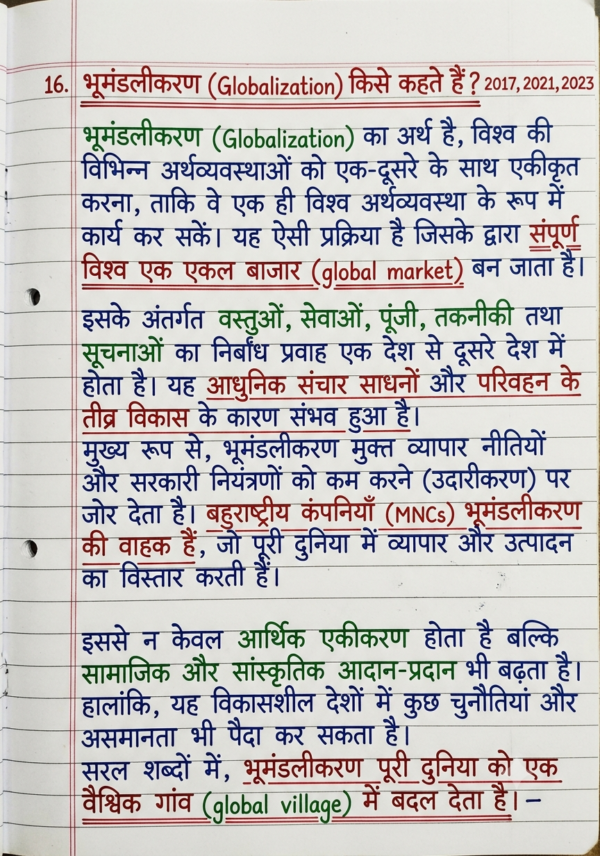 16. भूमंडलीकरण (Globalization) किसे कहते हैं? 2017, 2021, 2023
भूमंडलीकरण (Globalization) का अर्थ है, विश्व की
विभिन्न अर्थव्यवस्थाओं को एक-दूसरे के साथ एकीकृत
करना, ताकि वे एक ही विश्व अर्थव्यवस्था के रूप में
कार्य कर सकें। यह ऐसी प्रक्रिया है जिसके द्वारा संपूर्ण
विश्व एक एकल बाजार (global market) बन जाता है।
इसके अंतर्गत वस्तुओं, सेवाओं, पूंजी, तकनीकी तथा
सूचनाओं का निर्बाध प्रवाह एक देश से दूसरे देश में
होता है। यह आधुनिक संचार साधनों और परिवहन के
तीव्र विकास के कारण संभव हुआ है।
मुख्य रूप से, भूमंडलीकरण मुक्त व्यापार नीतियों
और सरकारी नियंत्रणों को कम करने (उदारीकरण) पर
जोर देता है। बहुराष्ट्रीय कंपनियाँ (MNCs) भूमंडलीकरण
की वाहक हैं, जो पूरी दुनिया में व्यापार और उत्पादन
का विस्तार करती हैं।
इससे न केवल आर्थिक एकीकरण होता है बल्कि
सामाजिक और सांस्कृतिक आदान-प्रदान भी बढ़ता है।
हालांकि, यह विकासशील देशों में कुछ चुनौतियां और
असमानता भी पैदा कर सकता है।
सरल शब्दों में, भूमंडलीकरण पूरी दुनिया को एक
वैश्विक गांव (global village) में बदल देता है। –